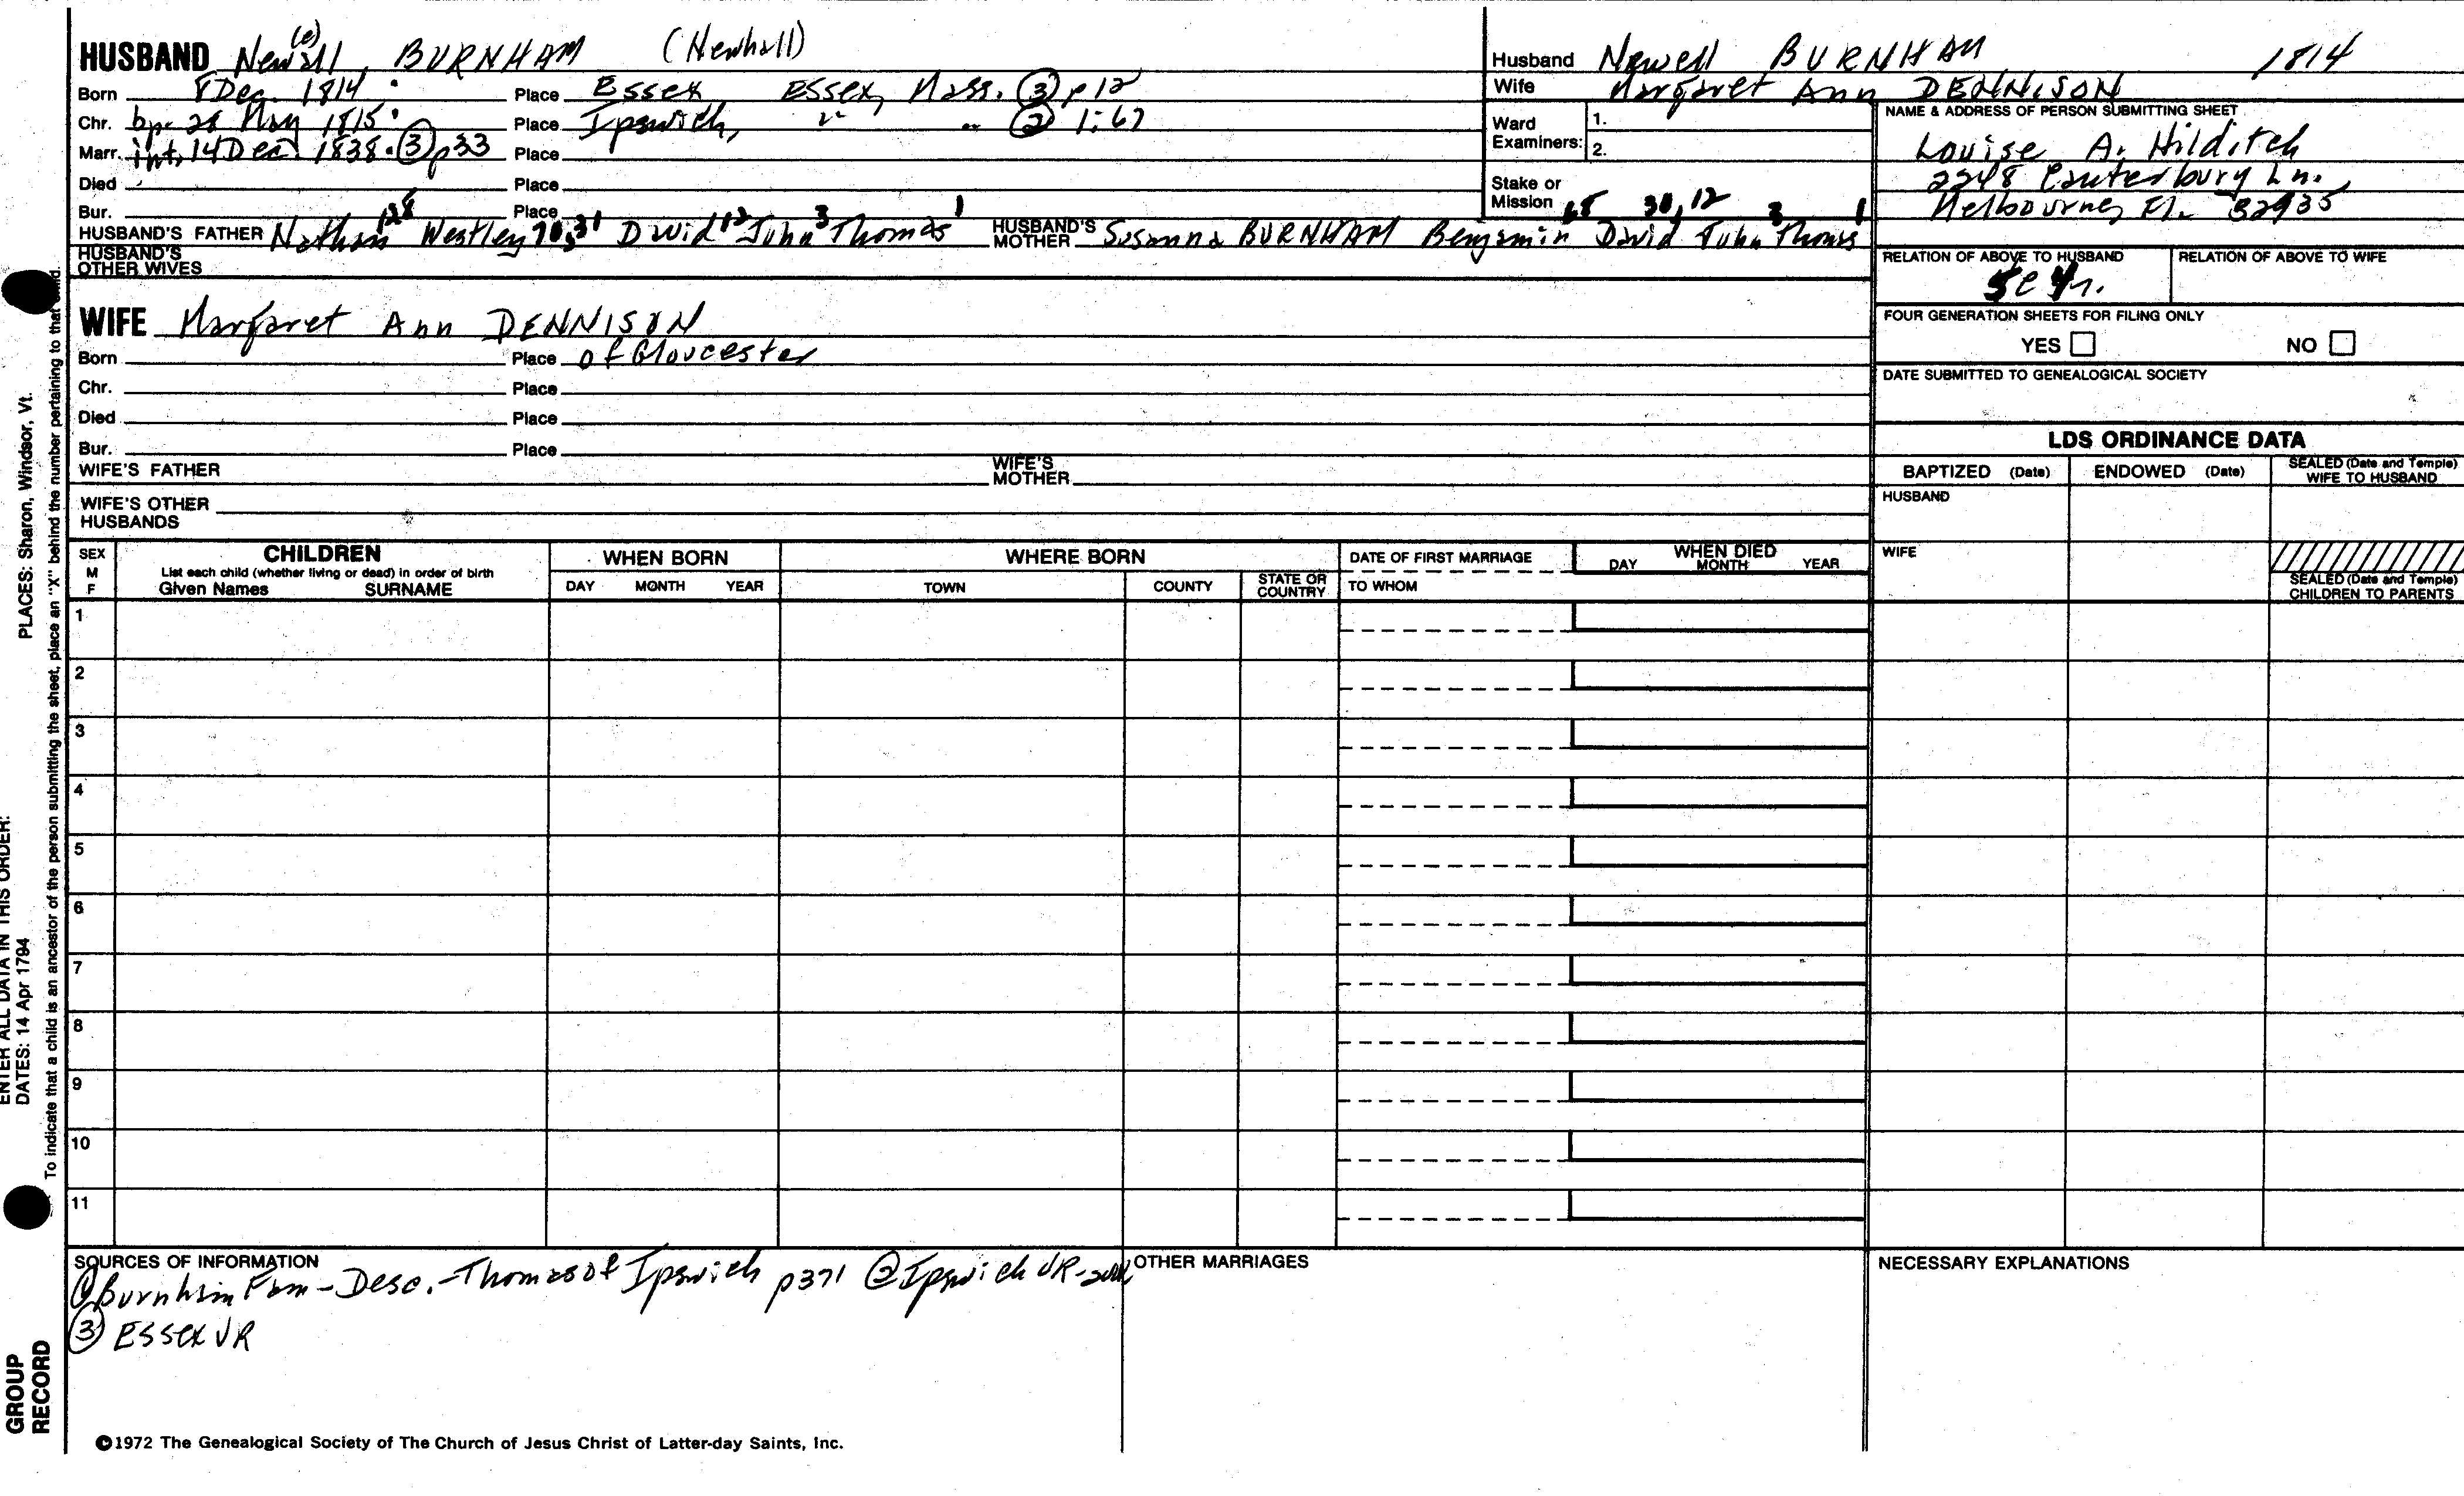 HUSBAND Newall (e) BURNHAM (Newhall)
Born 8 Dec. 1814 Place Essex Essex, Mass. ③ p 12
Chr. bp. 28 May 1815 Place Ipswich, " " ② 1:67
Marr. int. 14 Dec. 1838. ③ p33 Place
Died Place
Bur. Place
HUSBAND'S FATHER Nathan 128 Westley 70, 31 David 12 John 3 Thomas 1 HUSBAND'S MOTHER Susanna BURNHAM 65 Benjamin 30, 12 David 3 John Thomas 1
HUSBAND'S OTHER WIVES
WIFE Margaret Ann DENNISON
Born Place of Gloucester
Chr. Place
Died Place
Bur. Place
WIFE'S FATHER WIFE'S MOTHER
WIFE'S OTHER HUSBANDS
Husband Newell BURNHAM 1814
Wife Margaret Ann DENNISON
Ward Examiners: 1. 2.
Stake or Mission
NAME & ADDRESS OF PERSON SUBMITTING SHEET
Louise A. Hilditch
2248 Canterbury Ln.
Melbourne, Fl. 32935
RELATION OF ABOVE TO HUSBAND RELATION OF ABOVE TO WIFE
5c 4r.
FOUR GENERATION SHEETS FOR FILING ONLY
YES NO
DATE SUBMITTED TO GENEALOGICAL SOCIETY
LDS ORDINANCE DATA
BAPTIZED (Date) ENDOWED (Date) SEALED (Date and Temple) WIFE TO HUSBAND
HUSBAND
WIFE
SEALED (Date and Temple) CHILDREN TO PARENTS
SEX M F
CHILDREN
List each child (whether living or dead) in order of birth
Given Names SURNAME
WHEN BORN
DAY MONTH YEAR
WHERE BORN
TOWN COUNTY STATE OR COUNTRY
DATE OF FIRST MARRIAGE
TO WHOM
WHEN DIED
DAY MONTH YEAR
1
2
3
4
5
6
7
8
9
10
11
SOURCES OF INFORMATION
① Burnham Fam - Desc. - Thomas of Ipswich p371 ② Ipswich VR
③ Essex VR
OTHER MARRIAGES
NECESSARY EXPLANATIONS
©1972 The Genealogical Society of The Church of Jesus Christ of Latter-day Saints, Inc.
GROUP
RECORD
ENTER ALL DATA IN THIS ORDER:
DATES: 14 Apr 1794
PLACES: Sharon, Windsor, Vt.
To indicate that a child is an ancestor of the person submitting the sheet, place an "X" behind the number pertaining to that child.